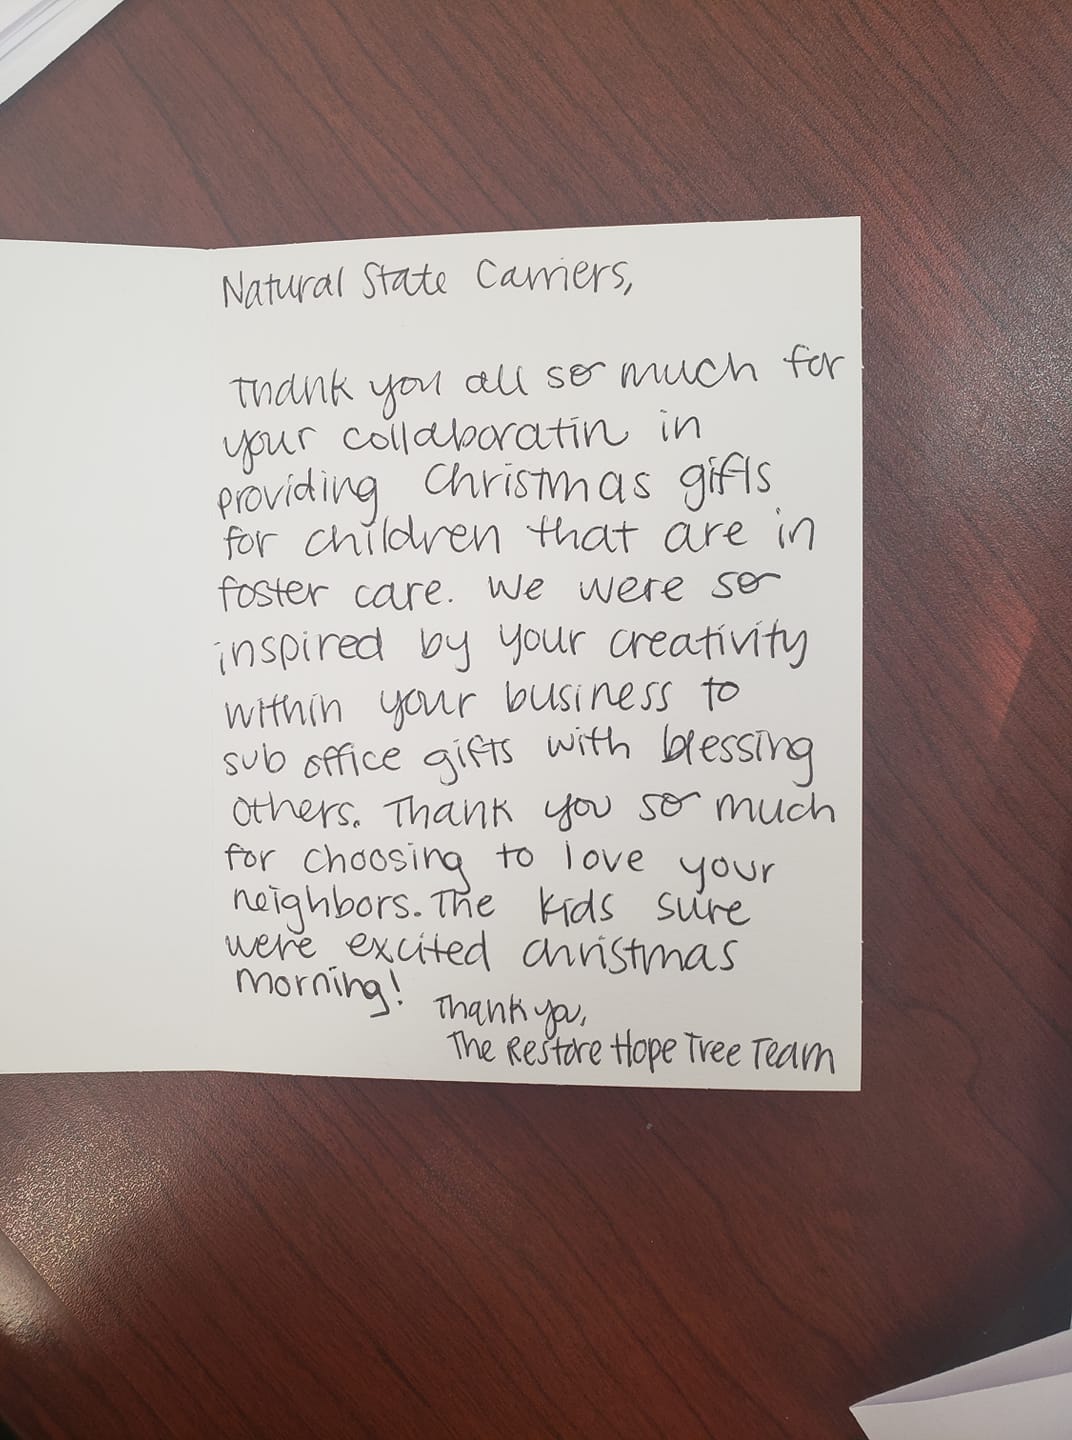 Natural State Carriers,
Thank you all so much for
your collaboratin in
providing Christmas gifts
for children that are in
foster care. We were so
inspired by your creativity
within your business to
sub office gifts with blessing
others. Thank you so much
for choosing to love your
neighbors. The kids sure
were excited christmas
morning!
Thank you,
The Restore Hope Tree Team